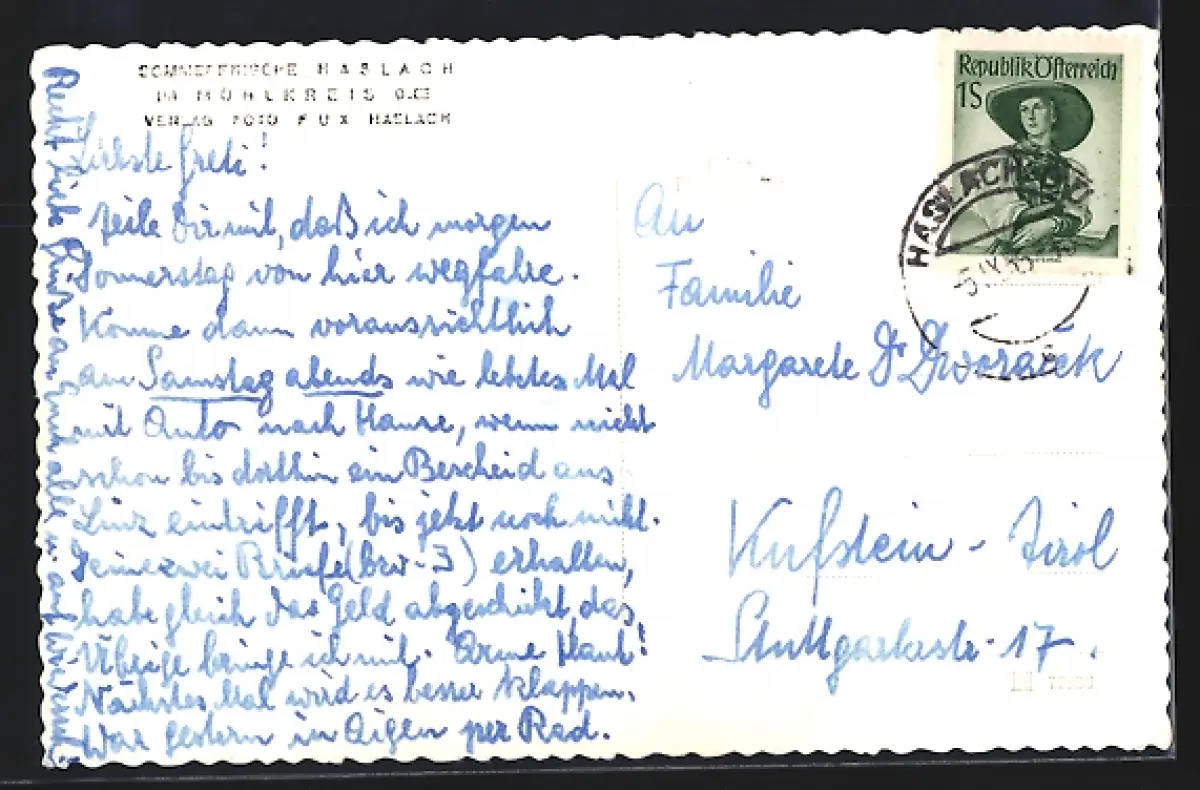 SOMMERFRISCHE HASLACH
IM MÜHLKREIS O.Ö.
VERLAG FOTO FUX HASLACH
Liebste Greti!
teile Dir mit, daß ich morgen
Donnerstag von hier wegfahre.
Komme dann voraussichtlich
am Samstag abends wie letztes Mal
mit Auto nach Hause, wenn nicht
schon bis dorthin ein Bescheid aus
Linz eintrifft, bis jetzt noch nicht.
Deine zwei Briefe (bzw. 3) erhalten,
habe gleich das Geld abgeschickt, das
Übrige bringe ich mit. Arme Haut!
Nächstes Mal wird es besser klappen.
War gestern in Aigen per Rad.
Recht liebe Grüße an Euch alle u. auf Wiederseh'n!
Republik Österreich
1S
HASLACH
5.IX.
An
Familie
Margarete Dr Dworaček
Kufstein - Tirol
Stuttgarterstr. 17.